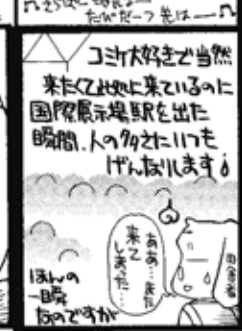 さらばー
たびだーつ 先はー
コミケ大好きで当然
来たくて此処に来ているのに
国際展示場駅を出た
瞬間、人の多さにいつも
げんなりします
ああ…また
来て
しまった…
田舎者
ほんの
一瞬
なのですが